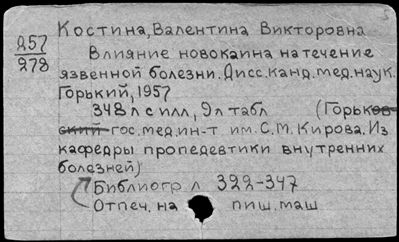 Костина, Валентина Викторовна
257
278
Влияние новокаина на течение
язвенной болезни. Дисс. канд. мед. наук.
Горький, 1957
348 л с илл, 9 л табл (Горьков-
ский гос. мед. ин-т им. С. М. Кирова. Из
кафедры пропедевтики внутренних
болезней)
Библиогр л 322-347
Отпеч. на пиш. маш